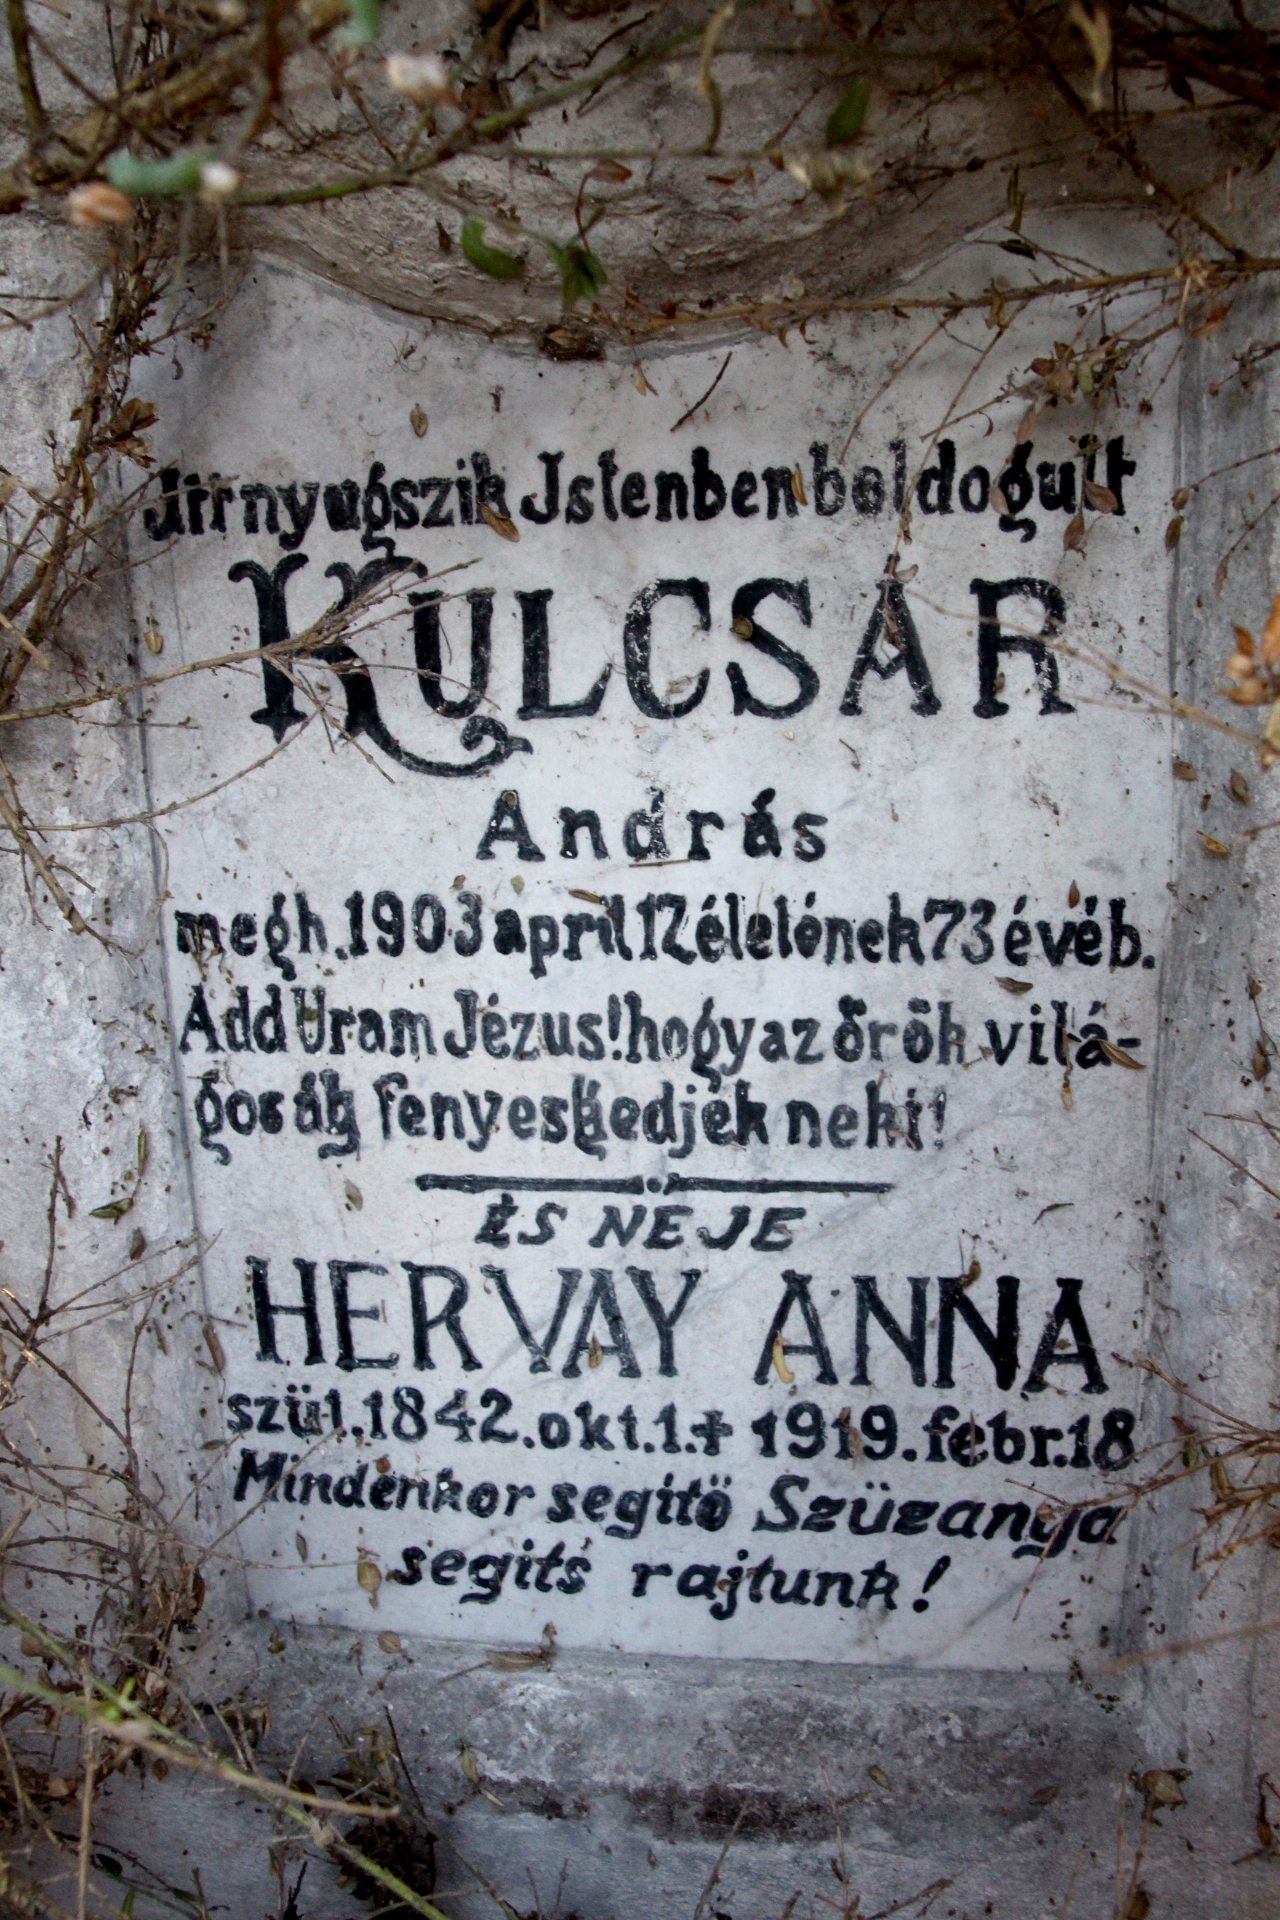 Jitt nyugszik Jstenben boldogult
KULCSÁR
András
megh.1903 april 12 életének 73 évéb.
Add Uram Jézus! hogy az örök vilá-
goság fenyeskedjék neki!
ÉS NEJE
HERVAY ANNA
szül.1842.okt.1.+ 1919.febr.18
Mindenkor segitö Szüzanya
segits rajtunk!